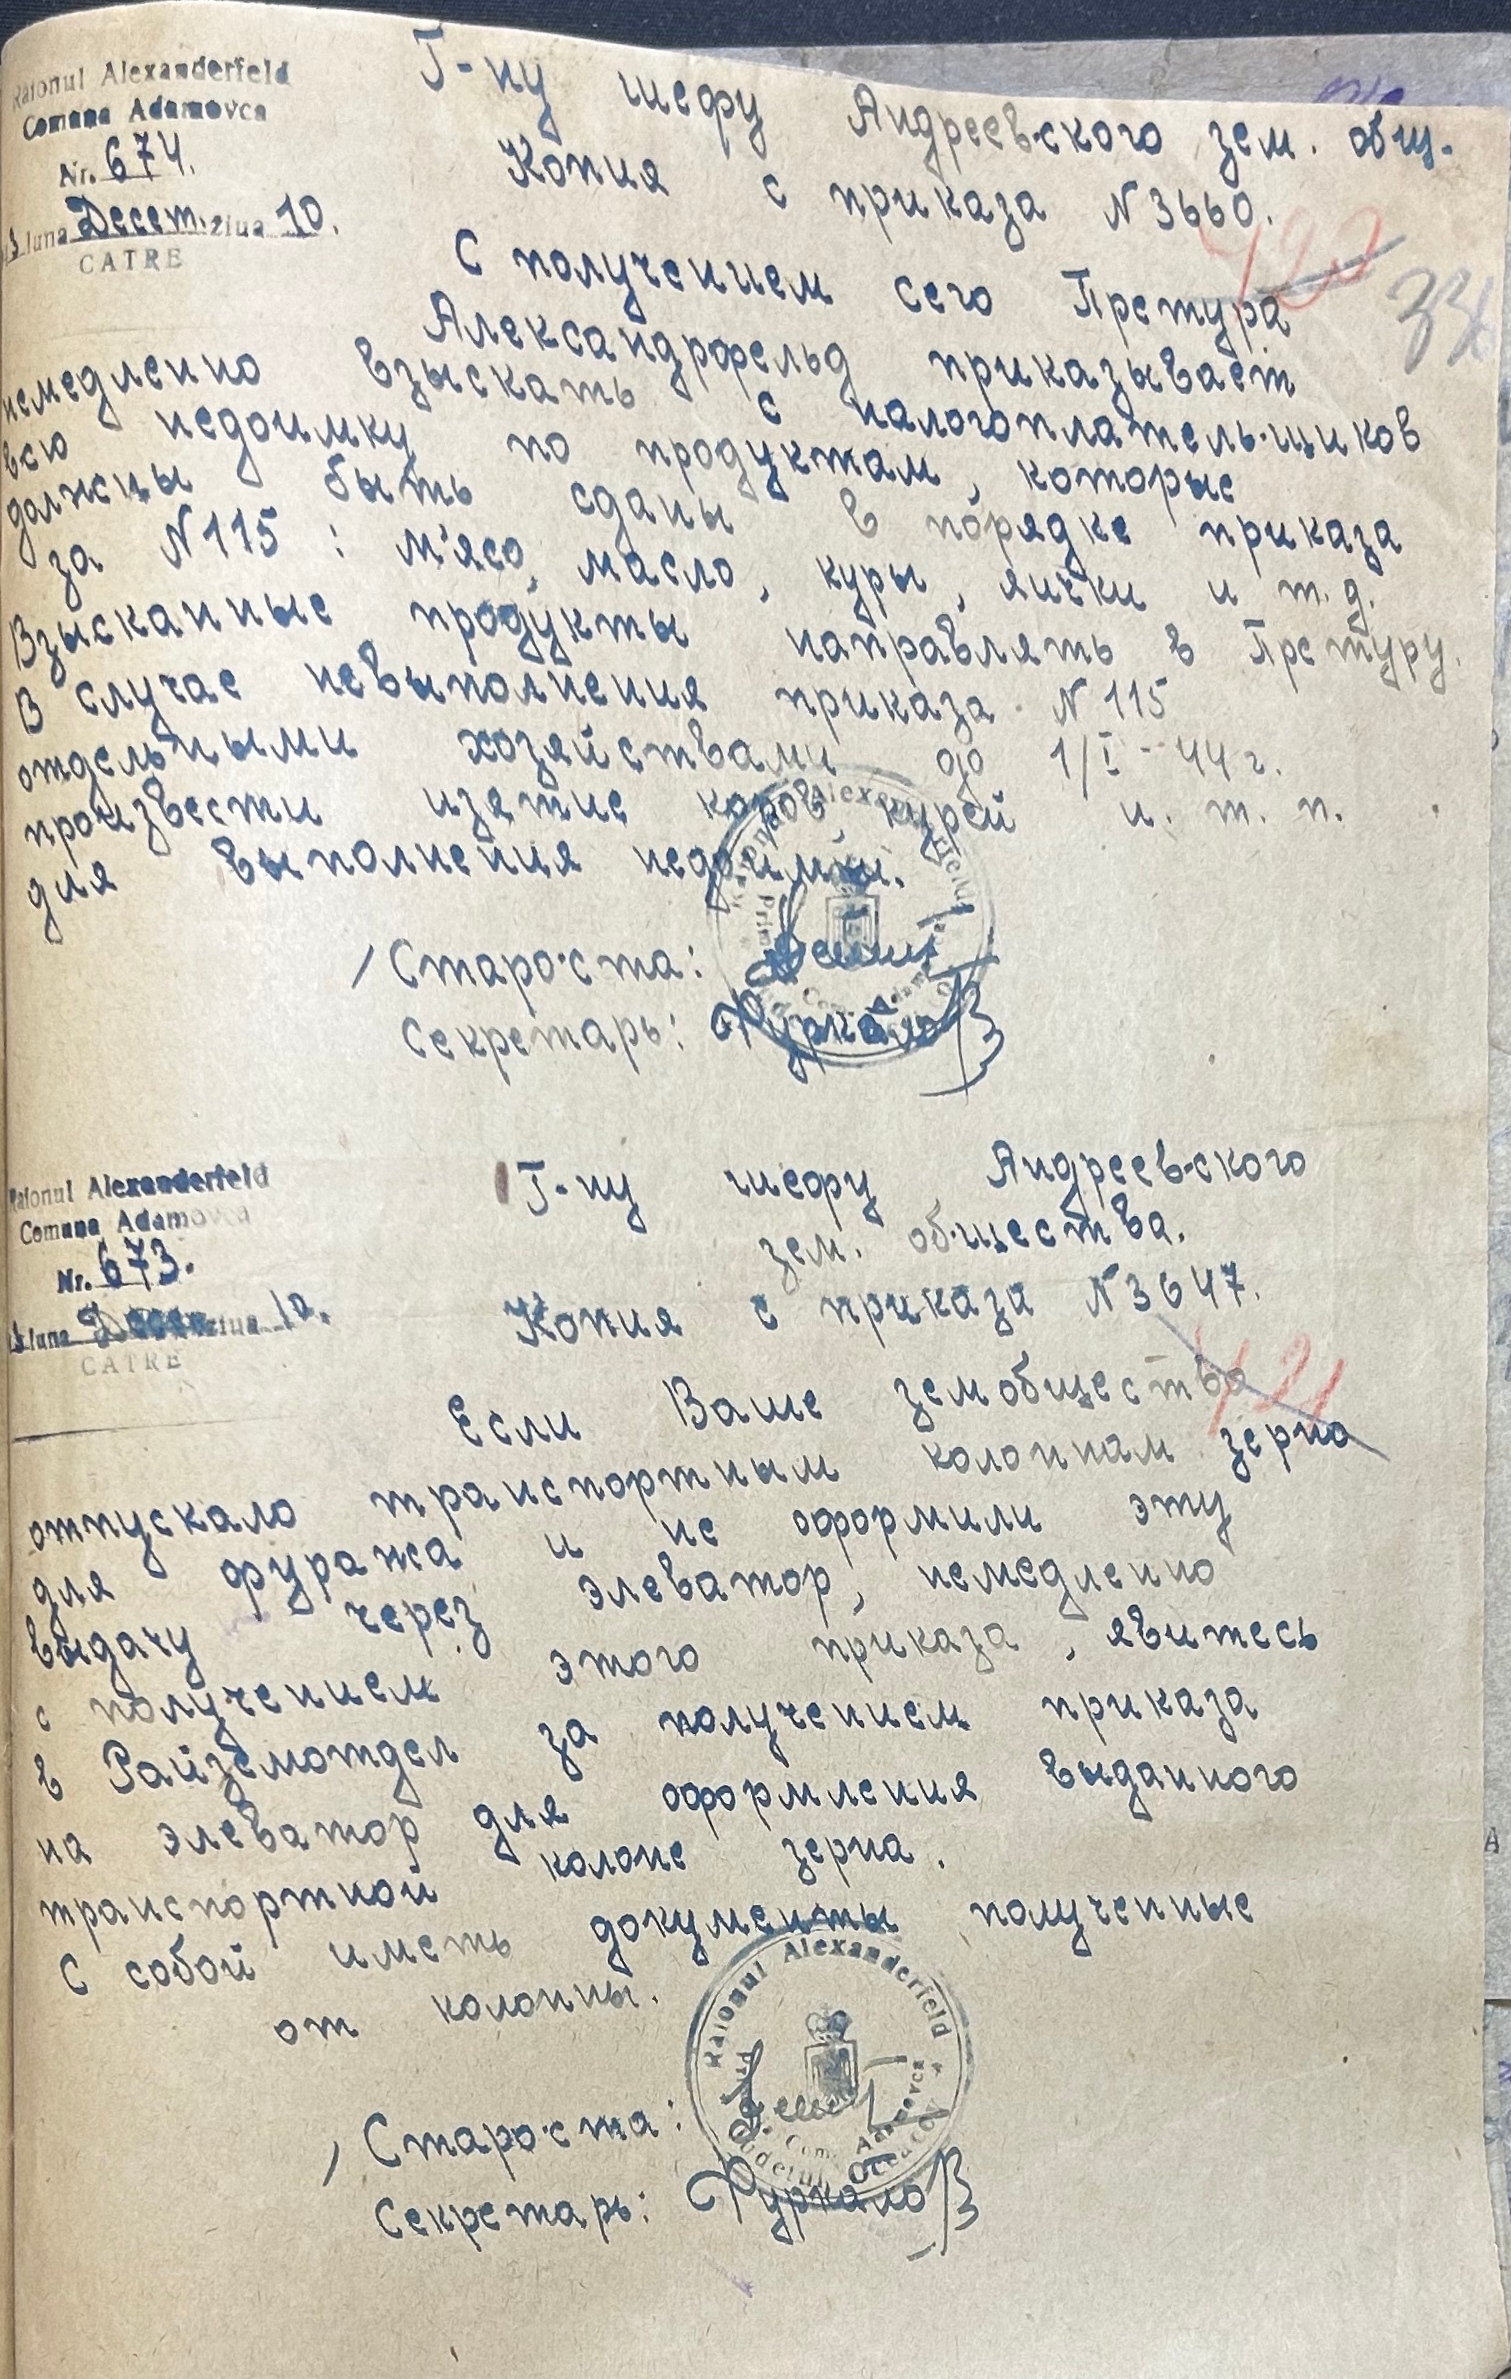 Raionul Alexanderfeld
Comuna Adamovca
Nr. 674.
luna Decem. ziua 10.
CATRE
Г-ну шефу Андреевского зем. общ.
Копия с приказа N 3660.
420
С получением сего Претура
Александрфельд приказывает
немедленно взыскать с налогоплательщиков
всю недоимку по продуктам, которые
должны быть сданы в порядке приказа
за N 115 : м'ясо, масло, куры, яички и т.д.
Взысканные продукты направлять в Претуру.
В случае невыполнения приказа N 115
отдельными хозяйствами до 1/I - 44 г.
произвести изятие коров, курей и. т. п.
для выполнения недоимки.
Raionul Alexanderfeld
Com. Adamovca
Староста:
Секретарь: Фуркало
Raionul Alexanderfeld
Comuna Adamovca
Nr. 673.
luna Decem ziua 10.
CATRE
Г-ну шефу Андреевского
зем. общества.
Копия с приказа N 3647.
421
Если Ваше земобщество
отпускало транспортным колоннам зерно
для фуража и не оформили эту
выдачу через элеватор, немедленно
с получением этого приказа, явитесь
в Райземотдел за получением приказа
на элеватор для оформления выданного
транспортной колоне зерна.
С собой иметь документы полученные
от колонны.
Raionul Alexanderfeld
Com. Adamovca
Judetul
Староста:
Секретарь: Фуркало